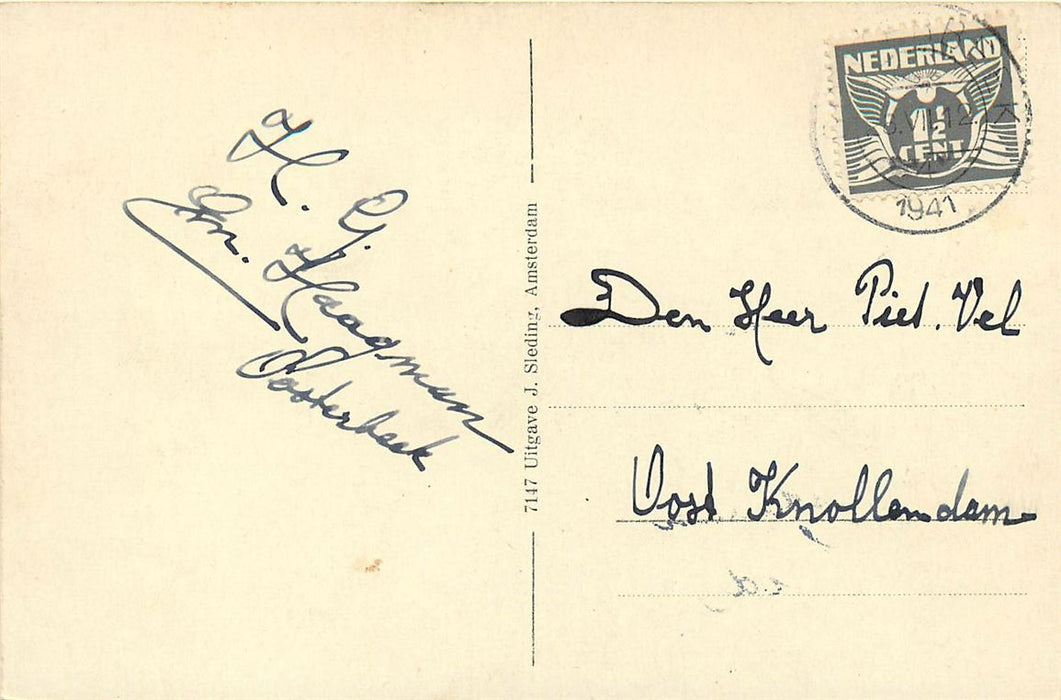 H. G.
Gm. Haagman
Oosterbeek
7147 Uitgave J. Sleding, Amsterdam
NEDERLAND
1½
CENT
.VII.12
1941
Den Heer Piet. Vel
Oost Knollendam